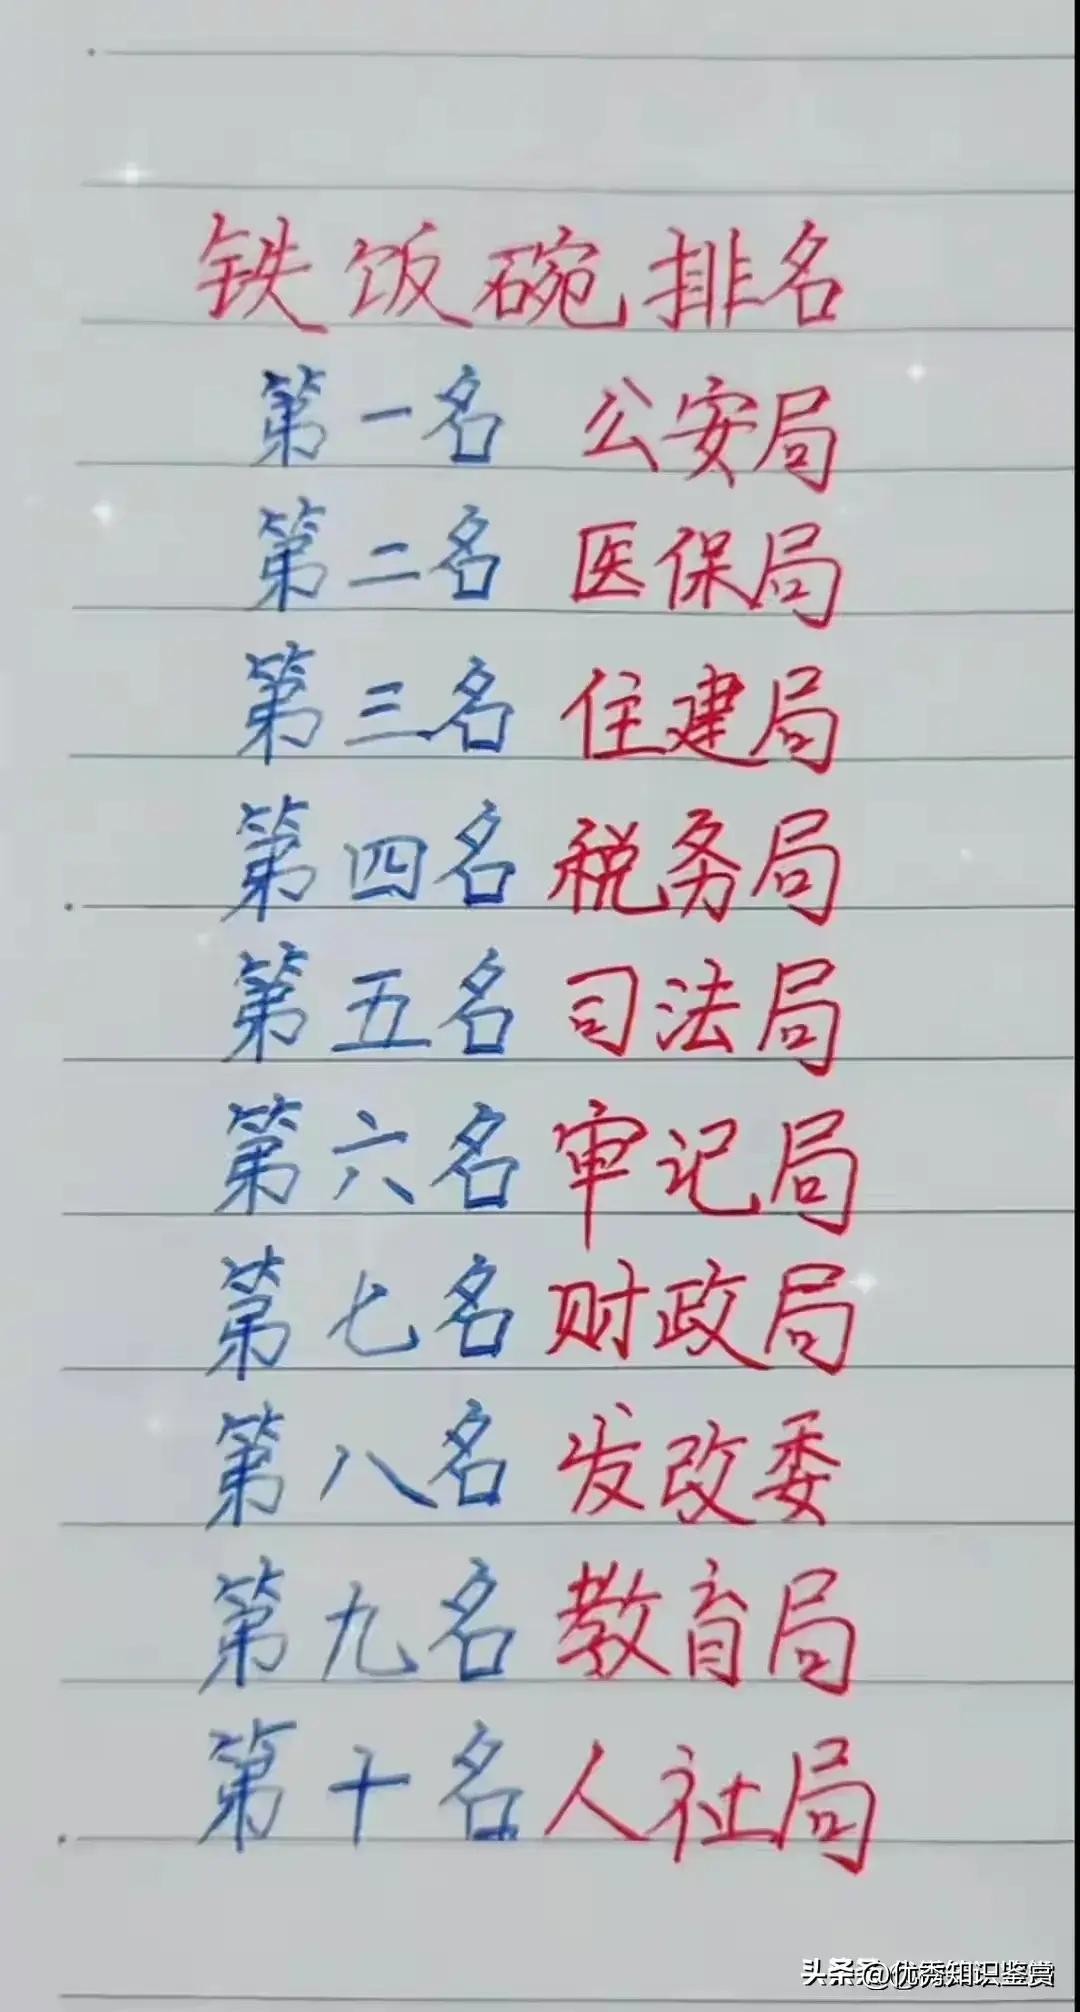 铁饭碗排名
第一名 公安局
第二名 医保局
第三名 住建局
第四名 税务局
第五名 司法局
第六名 审记局
第七名 财政局
第八名 发改委
第九名 教育局
第十名 人社局
头条 @优秀知识鉴赏